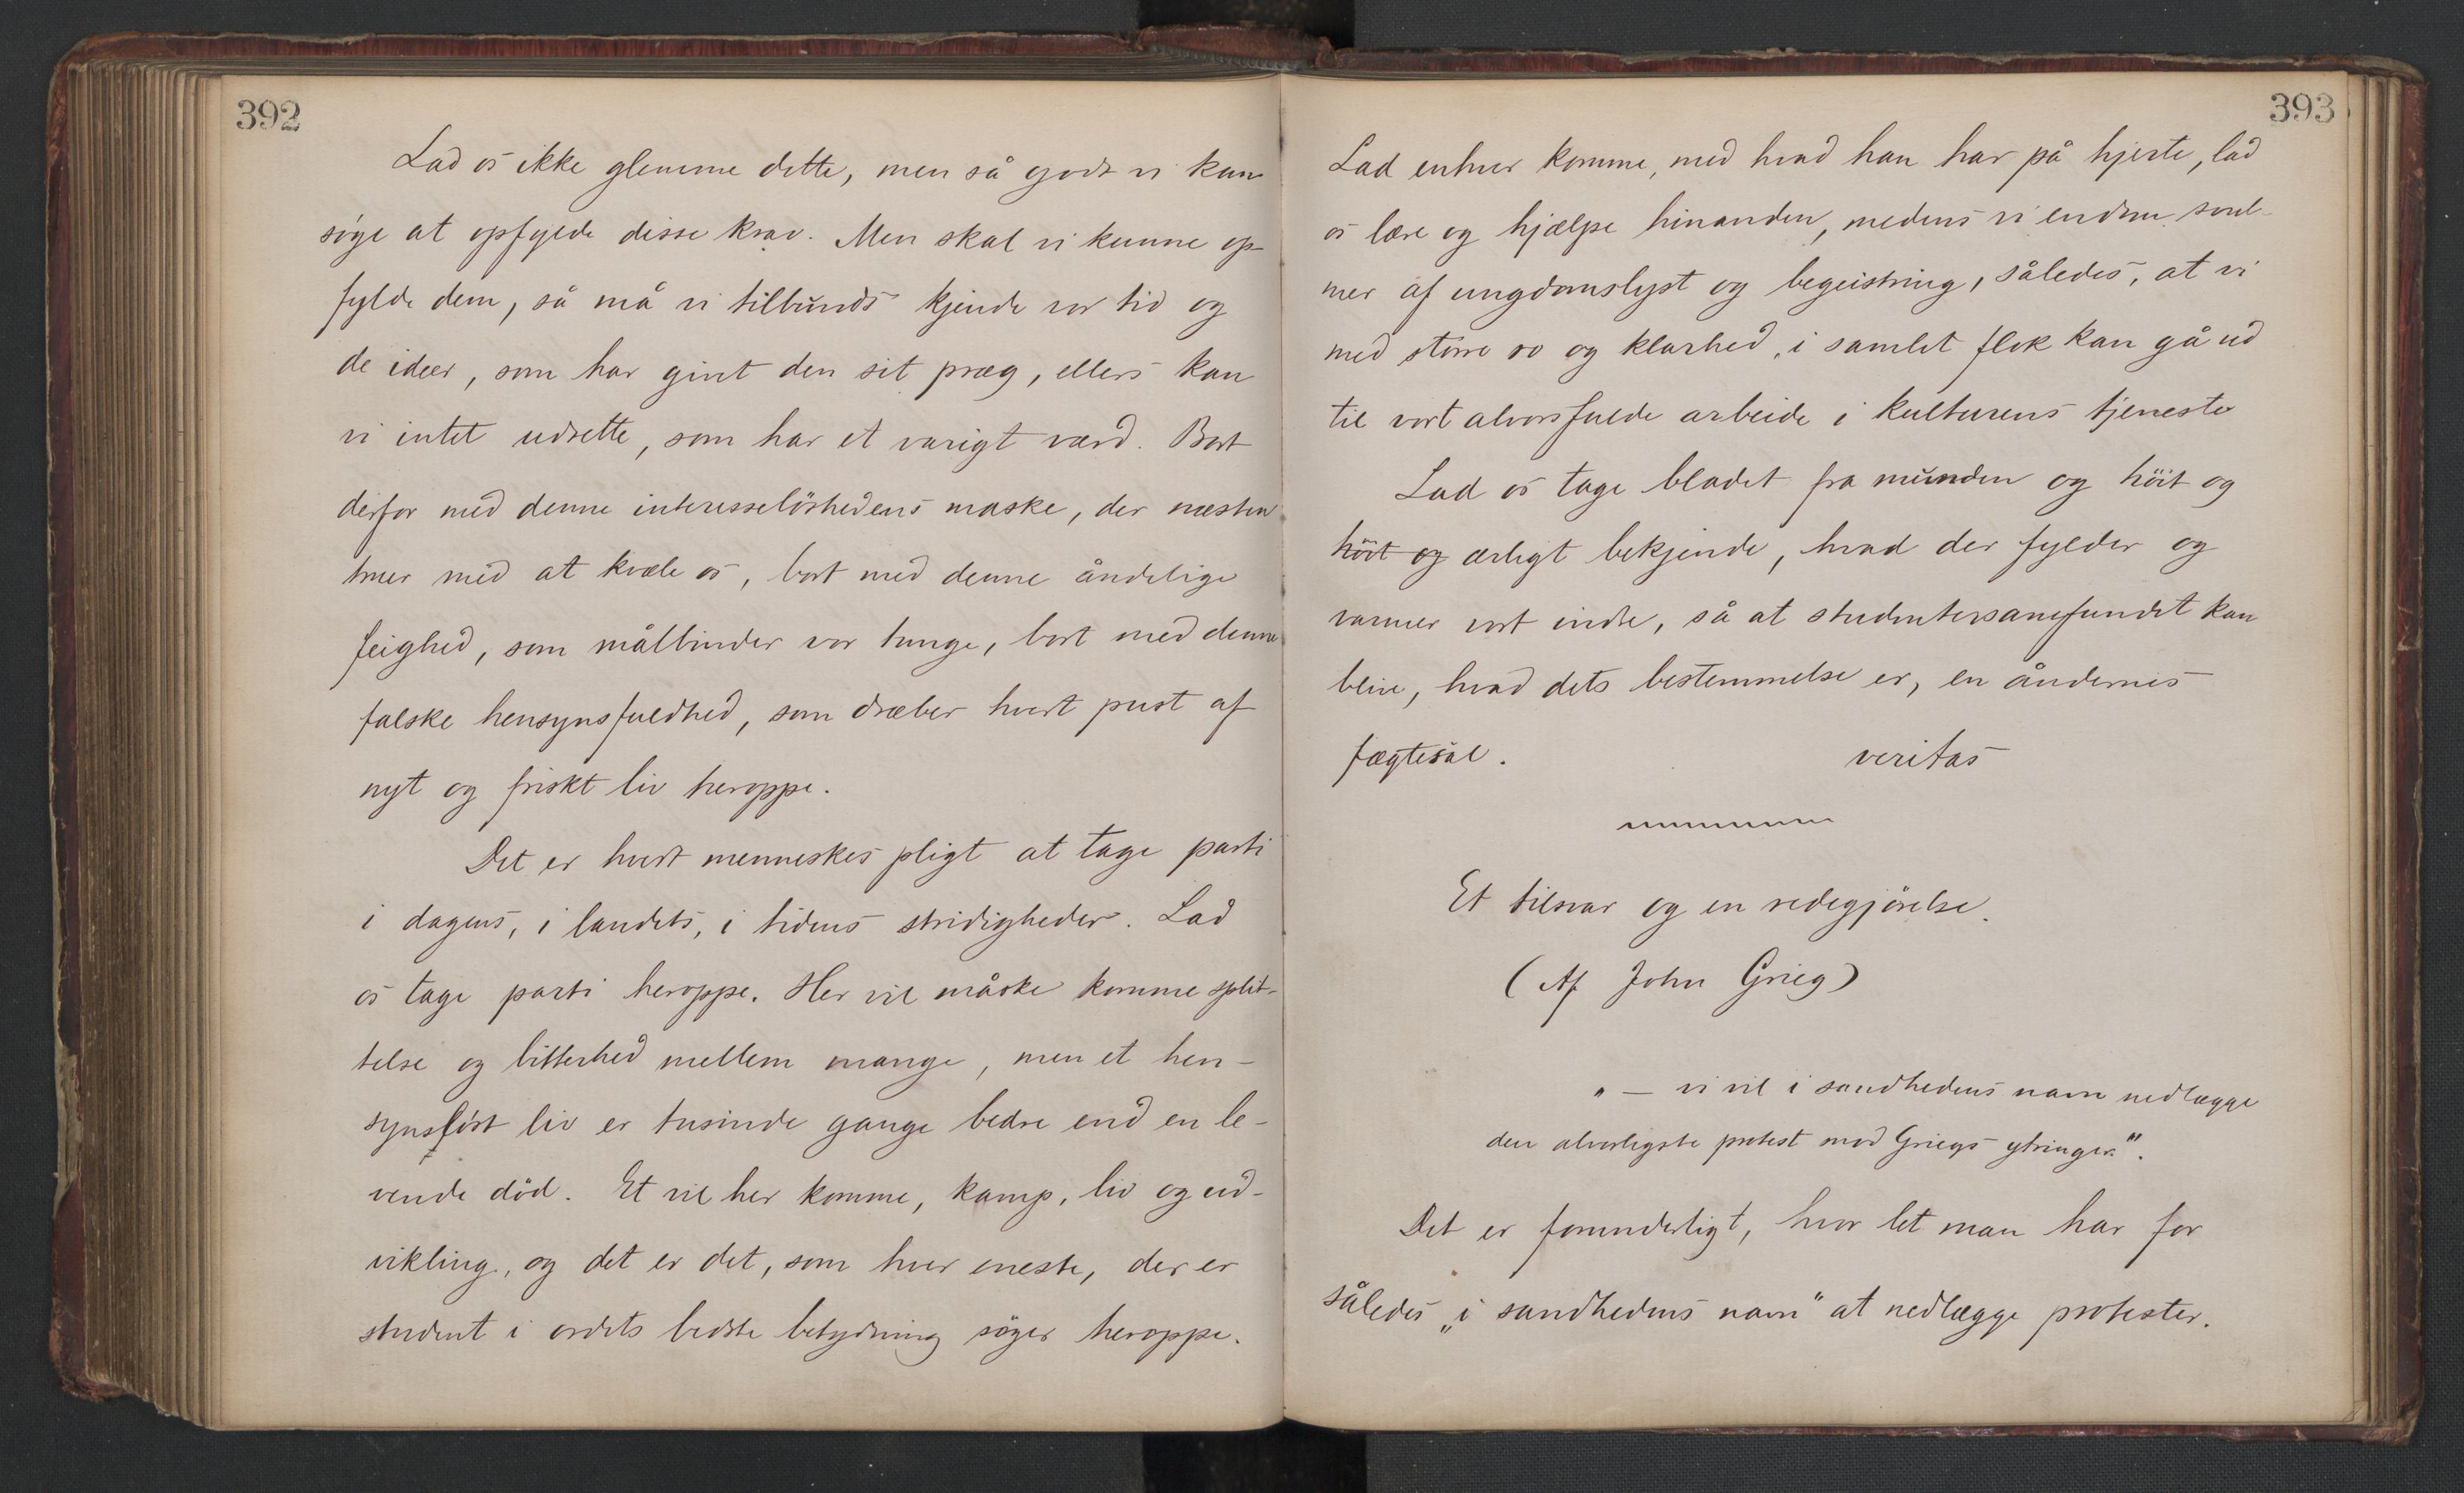 392
Lad os ikke glemme dette, men så godt vi kan
søge at opfylde disse krav. Men skal vi kunne op-
fylde dem, så må vi tilbunds kjende vor tid og
de ideer, som har givet den sit præg, ellers kan
vi intet udrette, som har et varigt værd. Bort
derfor med denne interesseløshedens maske, der næsten
truer med at kvæle os, bort med denne åndelige
feighed, som målbinder vor tunge, bort med denne
falske hensynsfuldhed, som dræber hvert pust af
nyt og friskt liv heroppe.
Det er hvert menneskes pligt at tage parti
i dagens, i landets, i tidens stridigheder. Lad
os tage parti heroppe. Her vil måske komme split-
telse og bitterhed mellem mange, men et hen-
synsløst liv er tusinde gange bedre end en le-
vende død. Et vil her komme, kamp, liv og ud-
vikling, og det er det, som hver eneste, der er
student i ordets bedste betydning søger heroppe.
393
Lad enhver komme, med hvad han har på hjerte, lad
os lære og hjælpe hinanden, medens vi endnu svul-
mer af ungdomslyst og begeistring, således, at vi
med større ro og klarhed, i samlet flok kan gå ud
til vort alvorsfulde arbeide i kulturens tjeneste
Lad os tage bladet fra munden og høit og
høit og ærligt bekjende, hvad der fylder og
varmer vort indre, så at studentersamfundet kan
blive, hvad dets bestemmelse er, en åndernes
fægtesal. veritas
Et tilsvar og en redegjørelse.
(Af John Grieg)
" — vi vil i sandhedens navn nedlægge
den alvorligste protest mod Griegs ytringer".
Det er forunderligt, hvor let man har for
således „i sandhedens navn" at nedlægge protester.